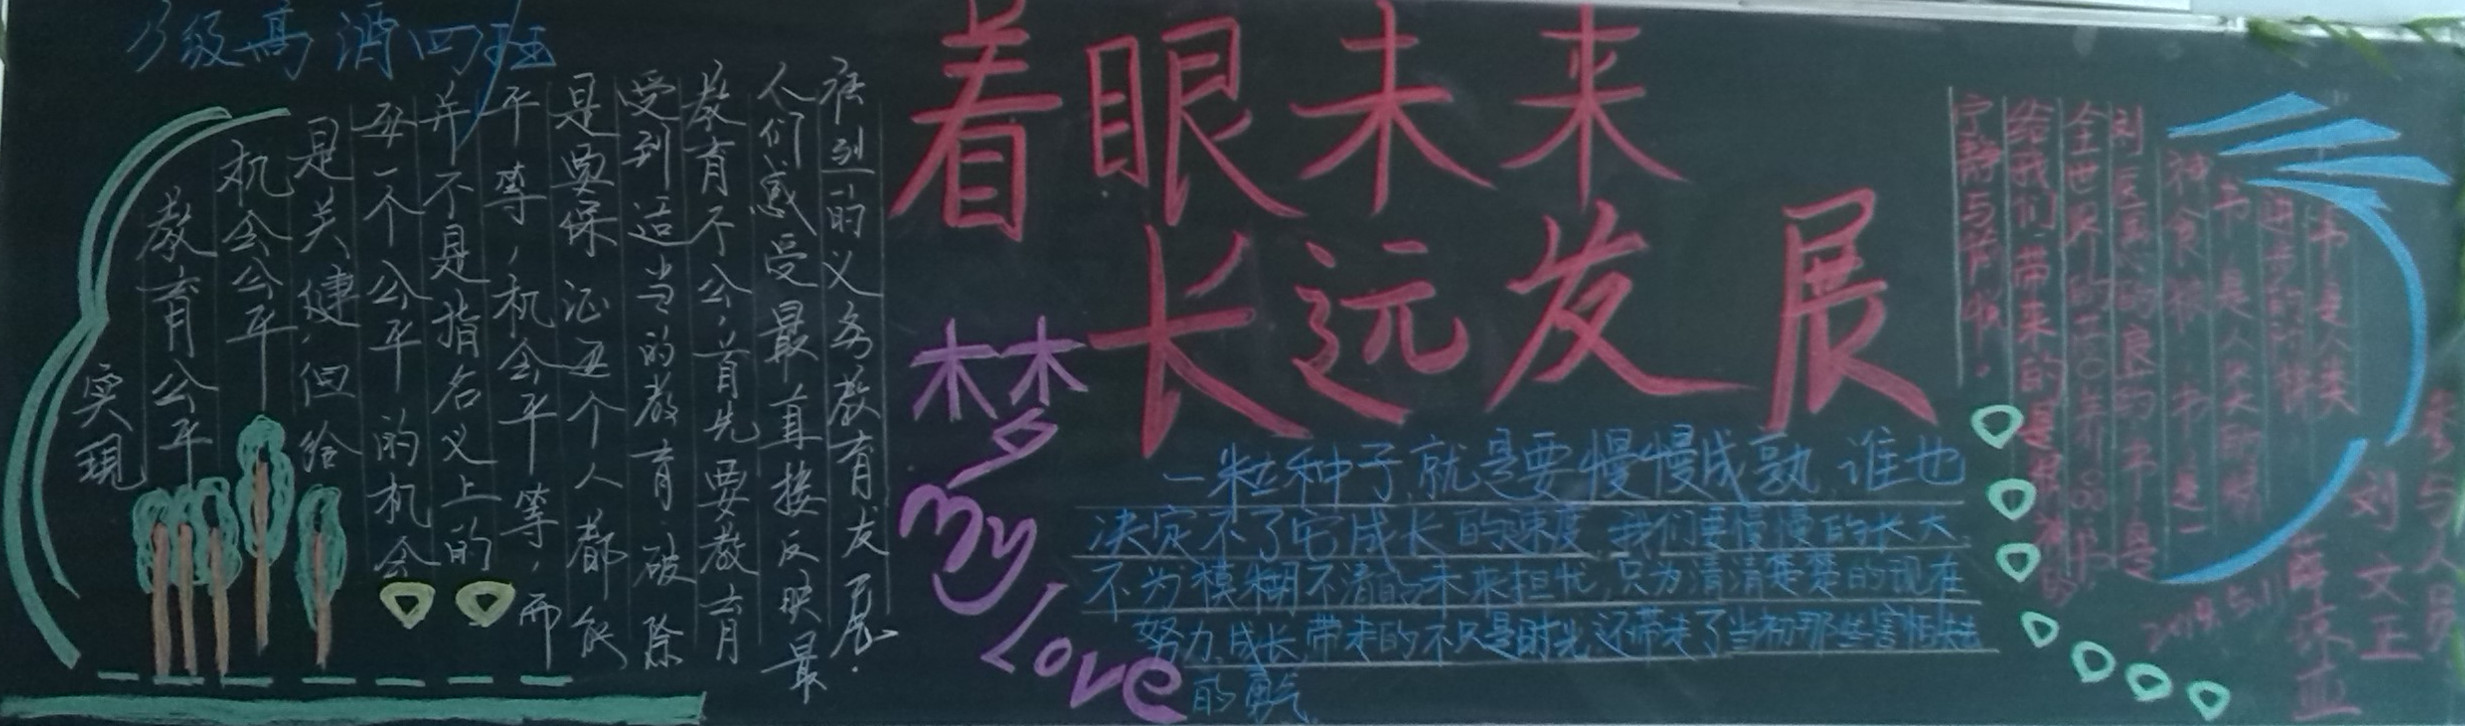 级高酒四班
着眼未来
长远发展
实现
教育公平
机会公平
是关键,但给
每一个公平的机会
并不是指名义上的
平等,机会平等,而
是要保证每个人都能
受到适当的教育,破除
教育不公,首先要教育
人们感受最直接反映最
的义务教育发展.
梦
my love
一粒种子,就是要慢慢成熟,谁也
决定不了它成长的速度,我们要慢慢的长大,
不为模糊不清的未来担忧,只为清清楚楚的现在
努力,成长,带来的不只是时光,还带来了当初那些害怕失去
的勇气
书是人类
进步的阶梯
书是人类的
神食粮,书是一
剂医愚的良药书是
全世界的
给我们带来的是精神的
宁静与
参与人员
刘文正
2019.5.1